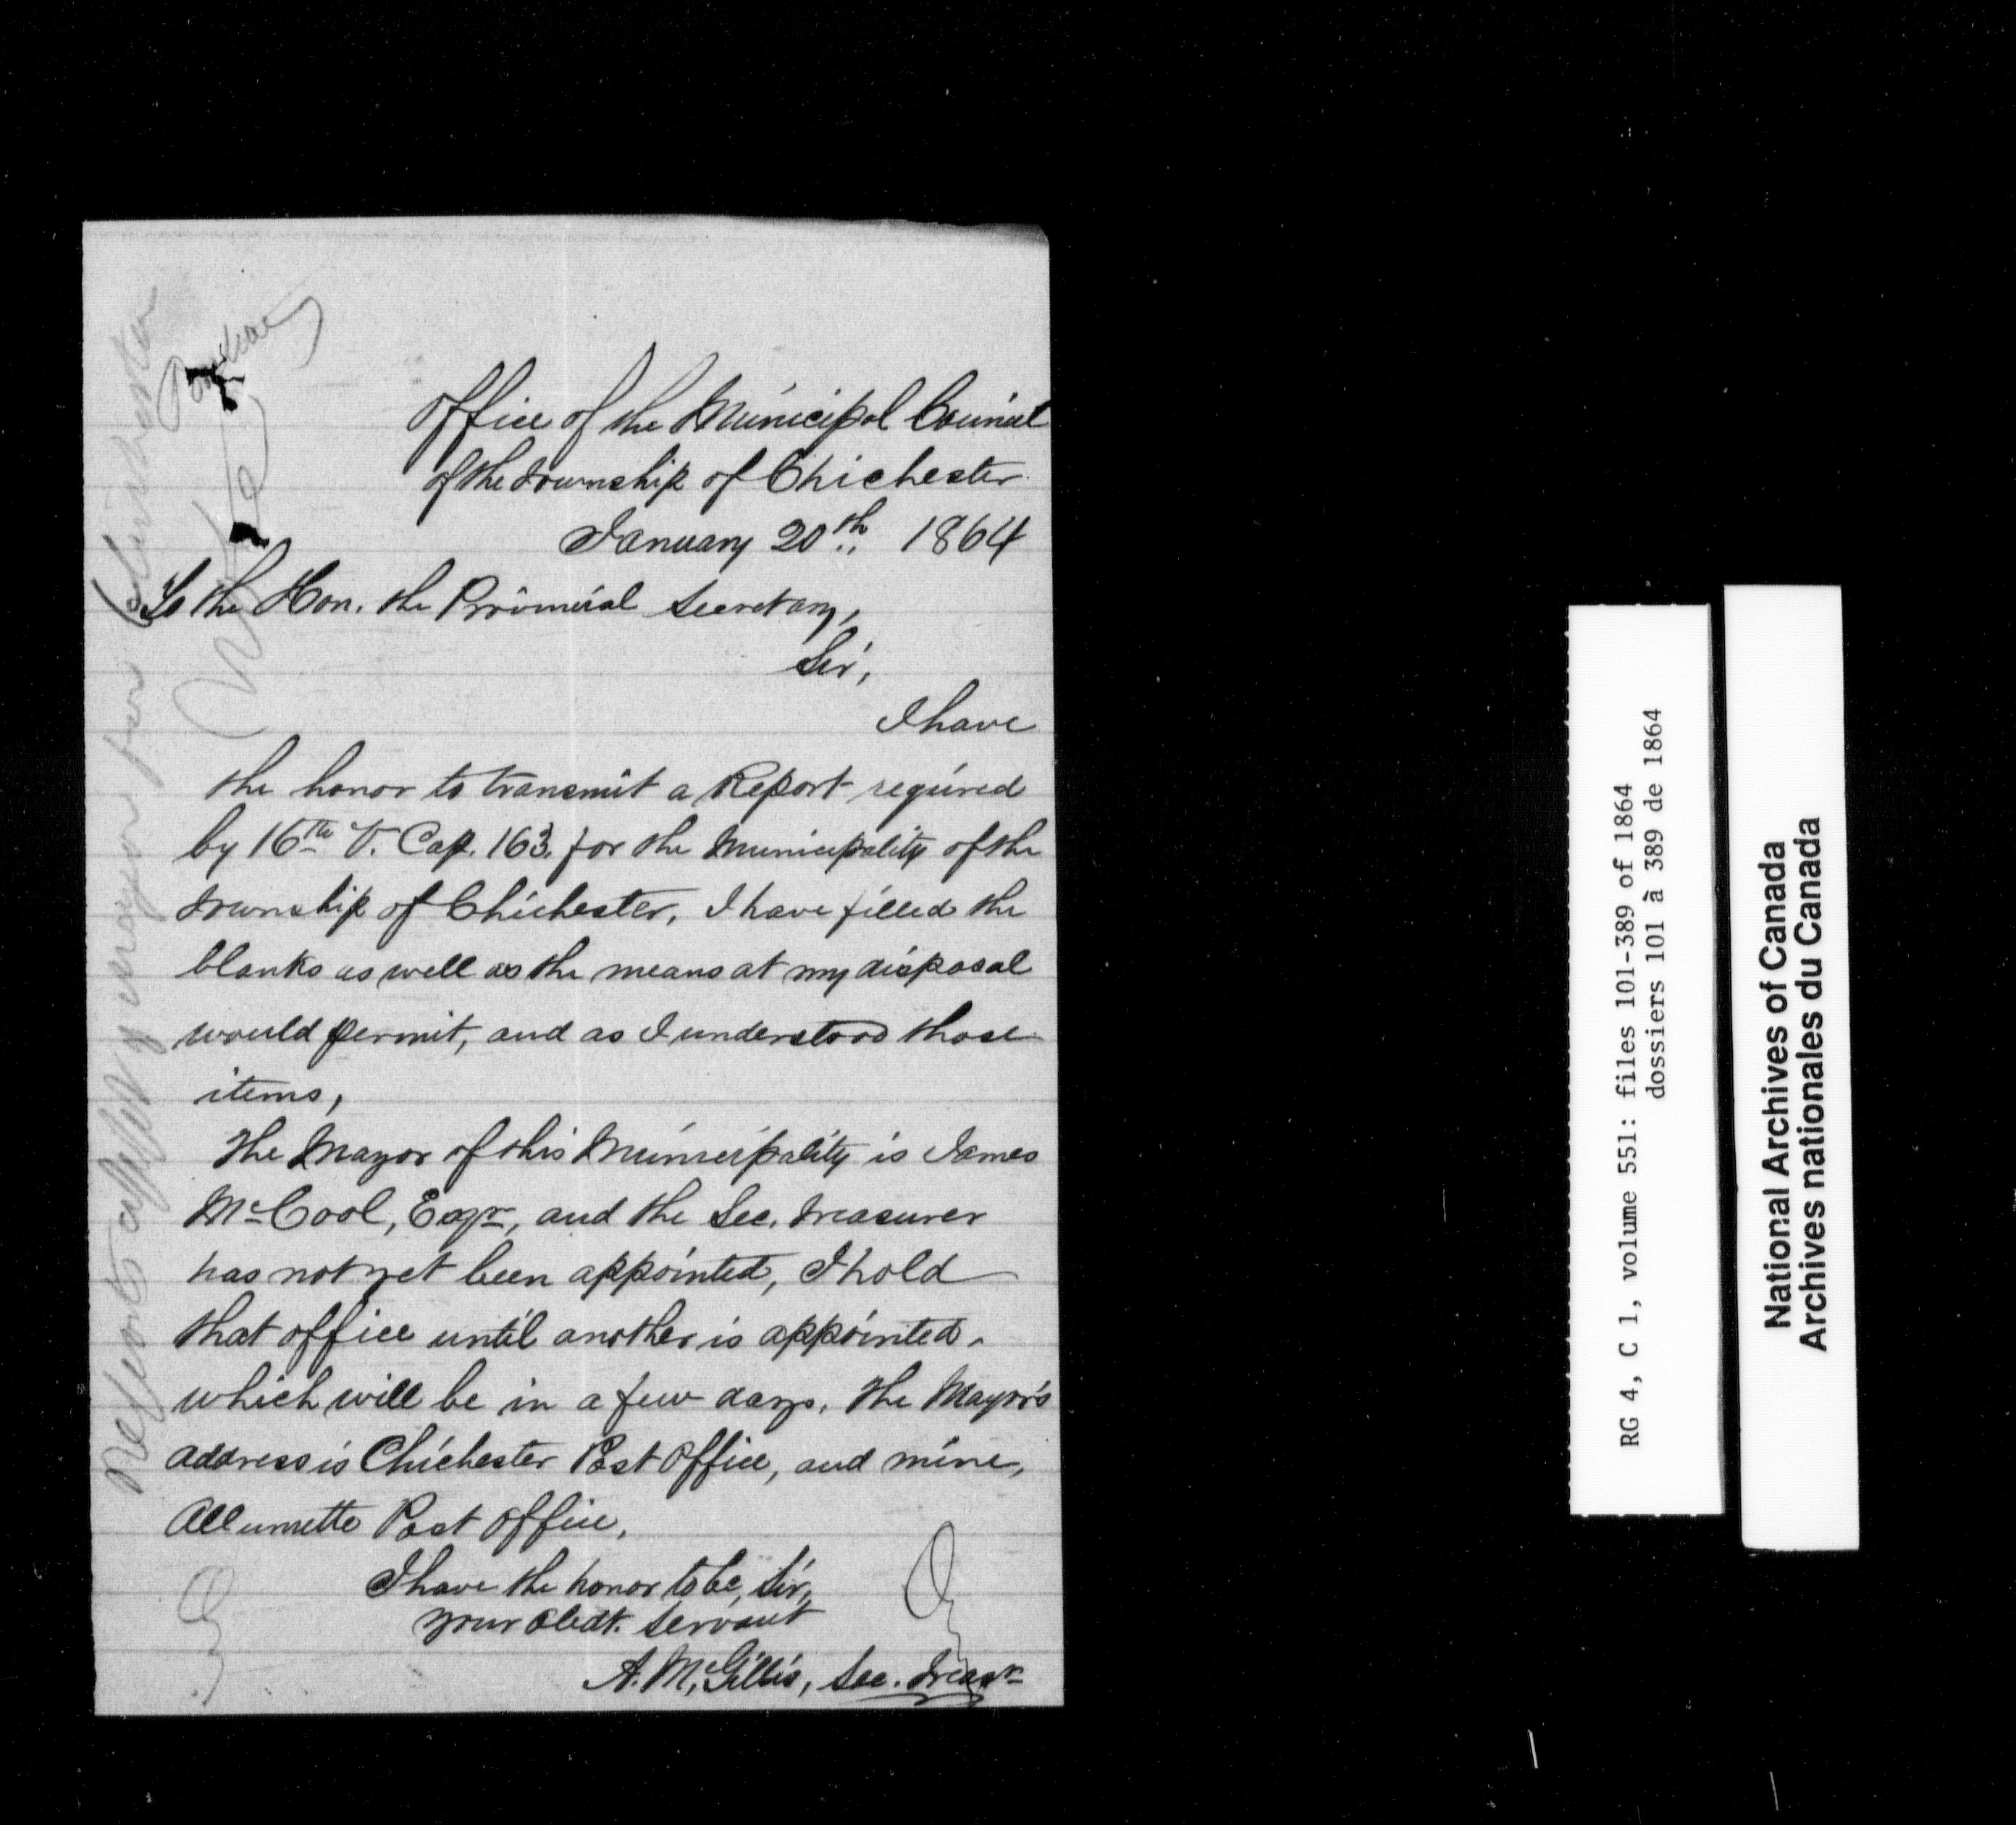 Pontiac
Office of the Municipal Council
of the Township of Chichester
January 20th 1864
To the Hon. the Provincial Secretary,
Sir,
I have
the honor to transmit a Report required
by 16th V. Cap. 163, for the Municipality of the
Township of Chichester, I have filled the
blanks as well as the means at my disposal
would permit, and as I understood those
items,
The Mayor of this Municipality is James
McCool, Esqr, and the Sec. Treasurer
has not yet been appointed, I hold
that office until another is appointed,
which will be in a few days. The Mayor's
address is Chichester Post Office, and mine,
Allumette Post Office,
I have the honor to be, Sir,
your Obedt. Servant
A. McGillis, Sec. Treasr
RG 4, C 1, volume 551: files 101-389 of 1864
dossiers 101 à 389 de 1864
National Archives of Canada
Archives nationales du Canada